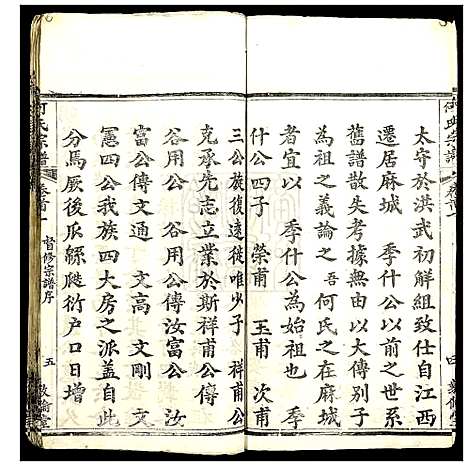 何氏宗譜
卷首一
太守於洪武初解組致仕自江西
遷居麻城　季什公以前之世系
舊譜散失考據無由以大傳別子
為祖之義論之　吾何氏之在麻城
者宜以　季什公為始祖也　季
什公四子　榮甫　玉甫　次甫
三公族復遠徙唯少子　祥甫公
克承先志立業於斯祥甫公傳
谷用公　谷用公傳汝富公　汝
富公傳文通　文剛　文
憲四公我族四大房之派蓋自此
分焉厥後瓜緜瓞衍戶口日增
何氏宗譜
卷首一
督修宗譜序
五
敦倫堂